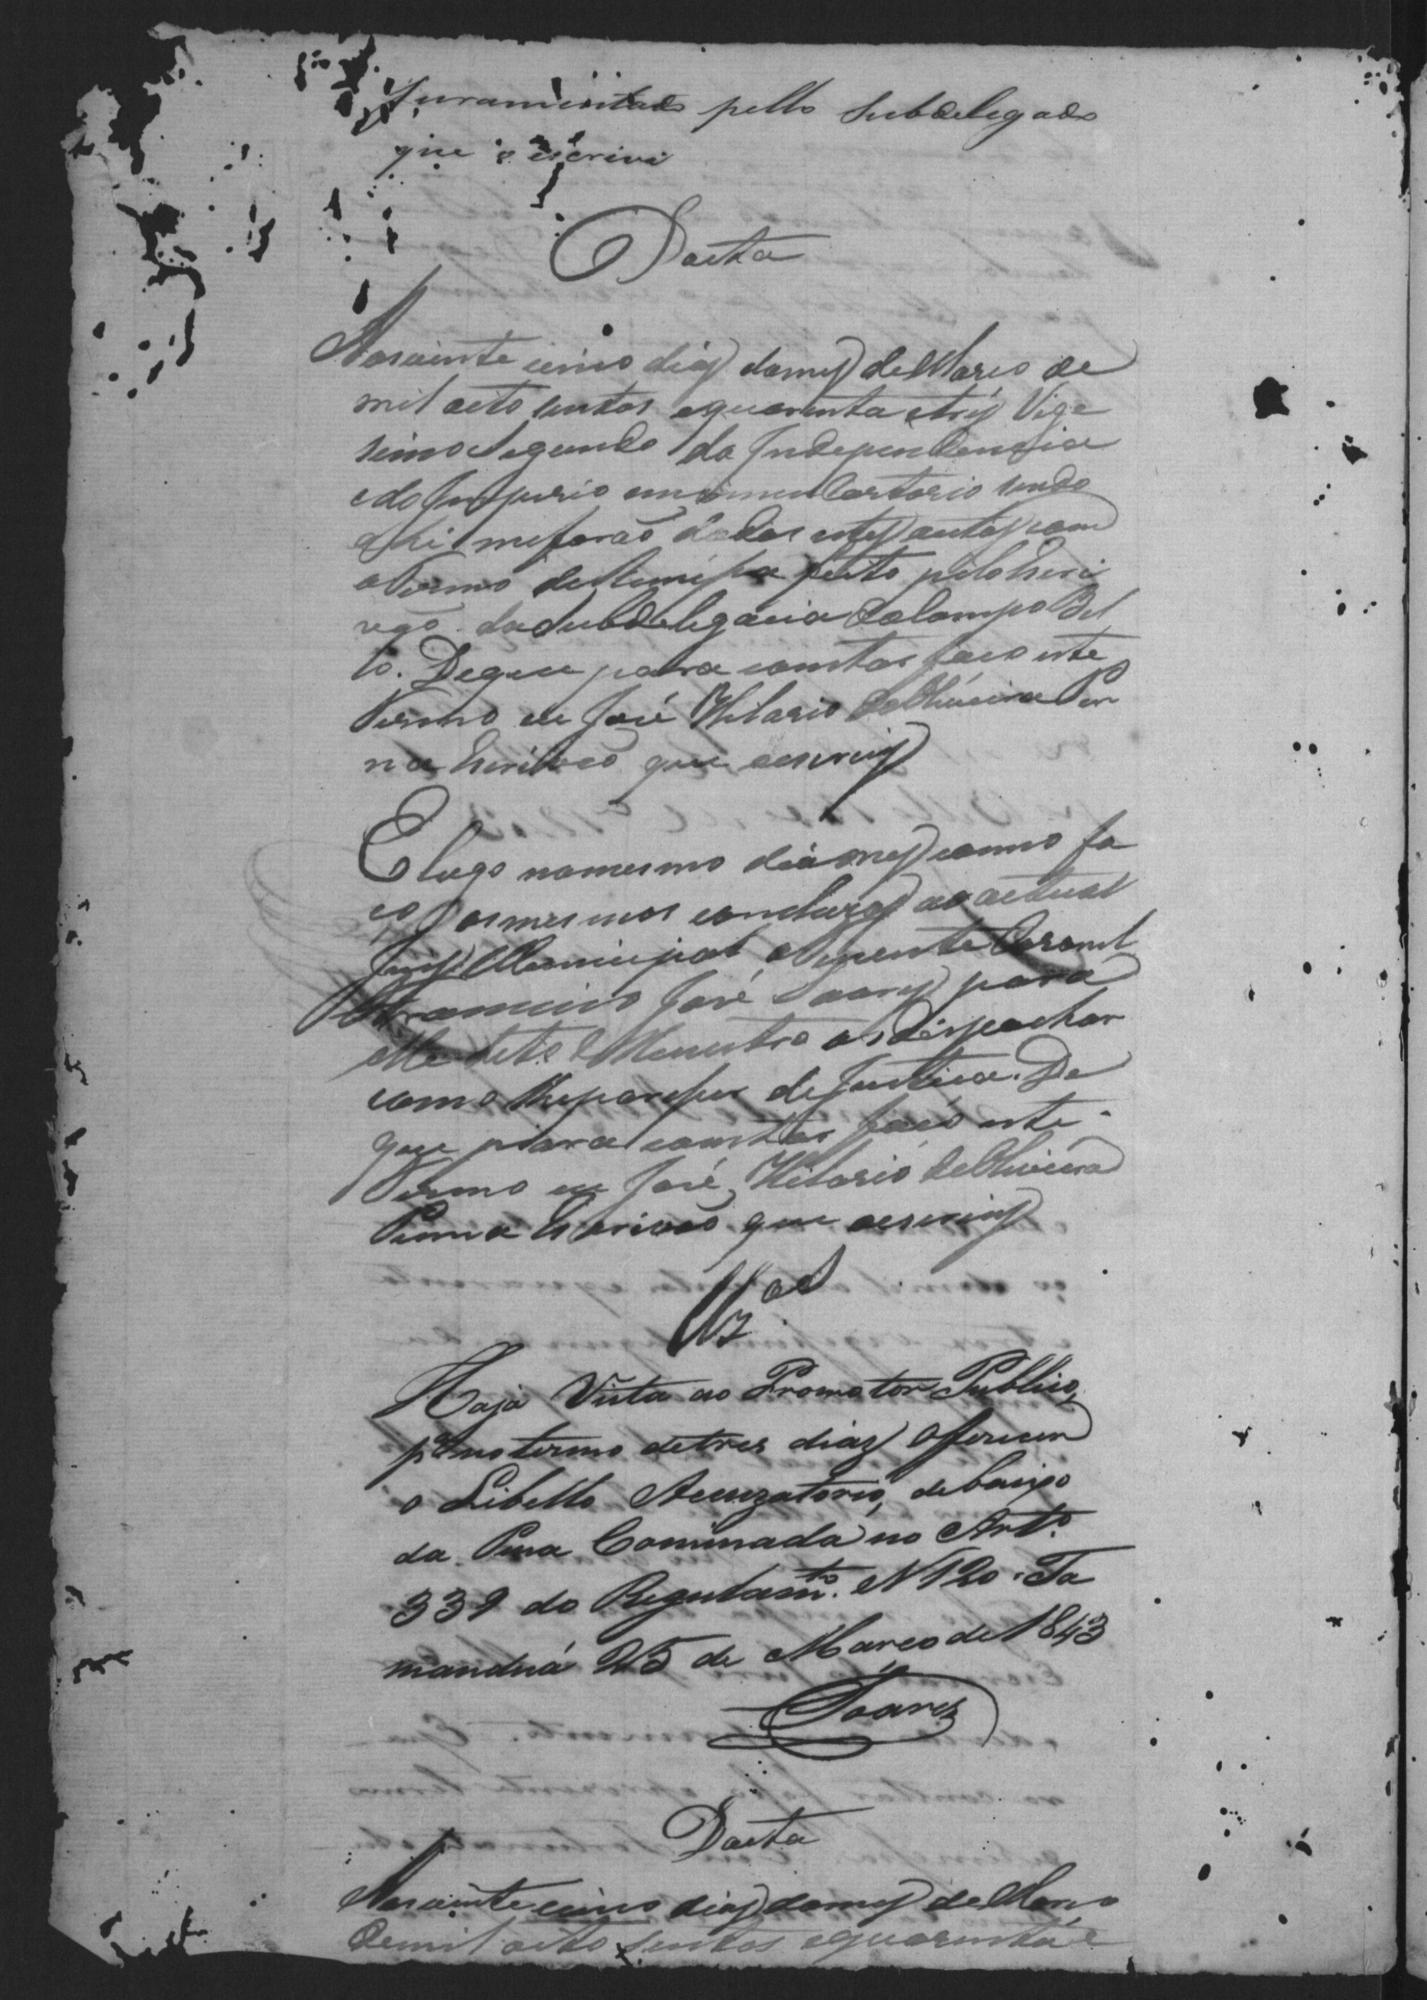 Juramentado pello Subdelegado
que o escrivi
Dacta
Aos vinte cinco dias do mes de Março de
mil oito sentos e quarenta e tres Vige
simo Segundo da Independencia
e do Imperio em o meu Cartorio sendo
ahi me forão dados estes autos com
o Termo de Remessa feito pelo Escri
vão da Subdelegacia do Campo Bel
lo. De que para constar faço este
Termo eu José Hilario de Oliveira Pen
na Escrivão que o escrevy
E logo no mesmo dia mes e anno fa
ço os mesmos concluzos ao actual
Juis Municipal o Tenente Coronel
Francisco José Soares para
elle dito Menistro os despachar
como lhe parecer de Justica. De
que para constar faço este
Termo eu José Hilario de Oliveira
Penna Escrivão que o escrevy
Clzos
Haja Vista ao Promotor Publico,
pa no termo de tres dias offerecer
o Libello Accuzatorio, debaixo
da Pena Cominada no Arto.
339 do Regulamto. N 120. Ta
manduá 25 de Marco de 1843
Soares
Dacta
Aos vinte cinco dias do mes de Março
de mil oito sentos e quarenta e